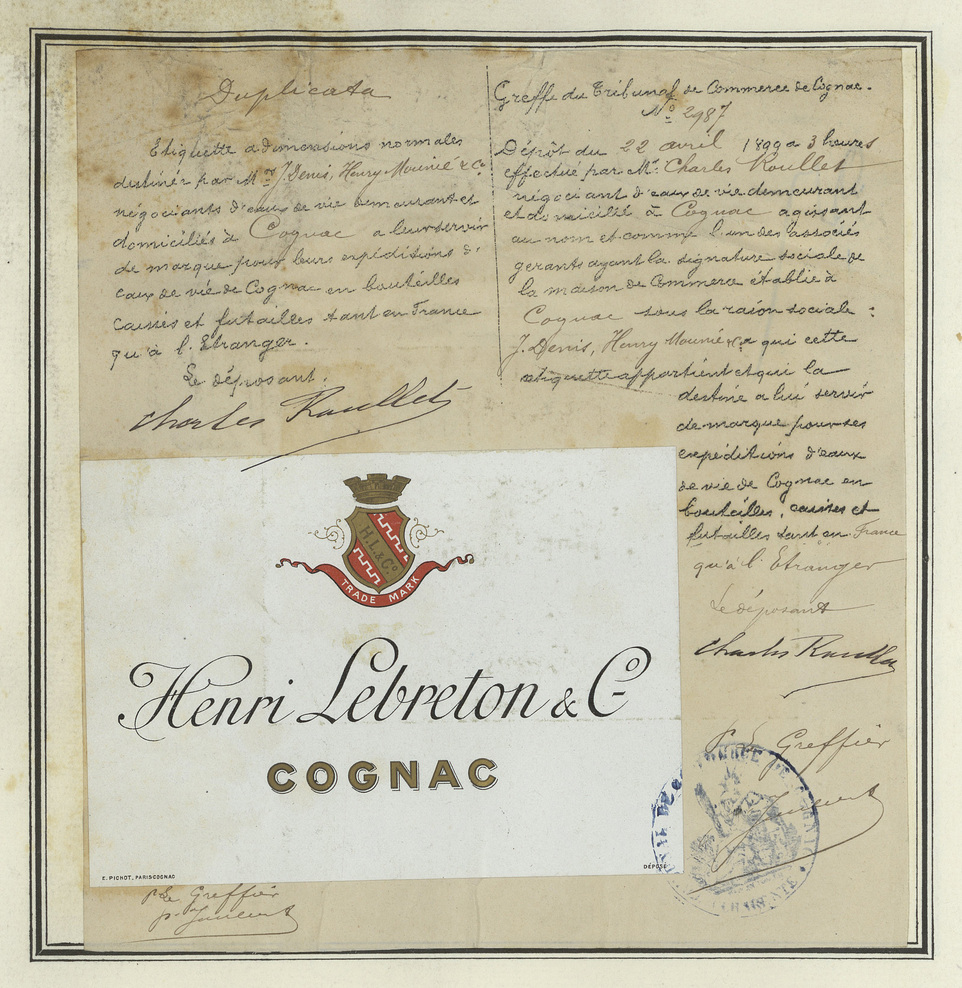 Duplicata
Etiquette a dimensions normales
destinée par Mrs J. Denis, Henry Mounié & Co
négociants d'eaux de vie demeurant et
domiciliés à Cognac a leur servir
de marque pour leurs expéditions d'
eaux de vie de Cognac en bouteilles
caisses et futailles tant en France
qu'à l'Etranger.
Le déposant.
Charles Roullet
Greffe du Tribunal de Commerce de Cognac.
No 2987
Dépôt du 22 avril 1899 a 3 heures
effectué par Mr. Charles Roullet
négociant d'eaux de vie demeurant
et domicilié à Cognac agissant
au nom et comme l'un des associés
gerants ayant la signature sociale de
la maison de Commerce établie à
Cognac sous la raison sociale :
J. Denis, Henry Mounié & Co a qui cette
etiquette appartient et qui la
destine a lui servir
de marque pour ses
expéditions d'eaux
de vie de Cognac en
bouteilles, caisses et
futailles tant en France
qu'à l'Etranger
Le déposant
Charles Roullet
p. Le Greffier
H.L.&Co
TRADE MARK
Henri Lebreton & Co
COGNAC
E. PICHOT, PARIS COGNAC
DÉPOSÉ
p. Le Greffier